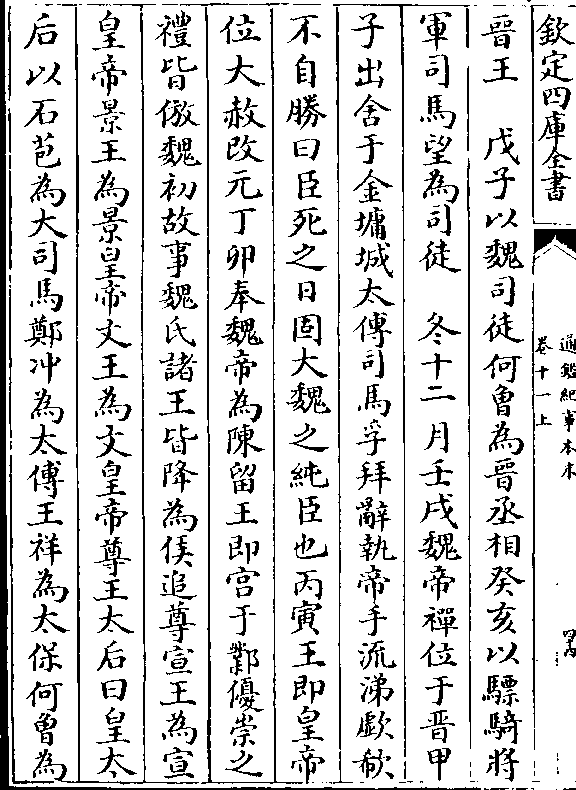 欽定四庫全書
通鑑紀事本末
卷十一上
晉王　戊子以魏司徒何曾為晉丞相癸亥以驃騎將
軍司馬望為司徒　冬十二月壬戌魏帝禪位于晉甲
子出舍于金墉城太傅司馬孚拜辭執帝手流涕歔欷
不自勝曰臣死之日固大魏之純臣也丙寅王即皇帝
位大赦改元丁卯奉魏帝為陳留王即宫于鄴優崇之
禮皆倣魏初故事魏氏諸王皆降為侯追尊宣王為宣
皇帝景王為景皇帝文王為文皇帝尊王太后曰皇太
后以石苞為大司馬鄭冲為太傅王祥為太保何曾為